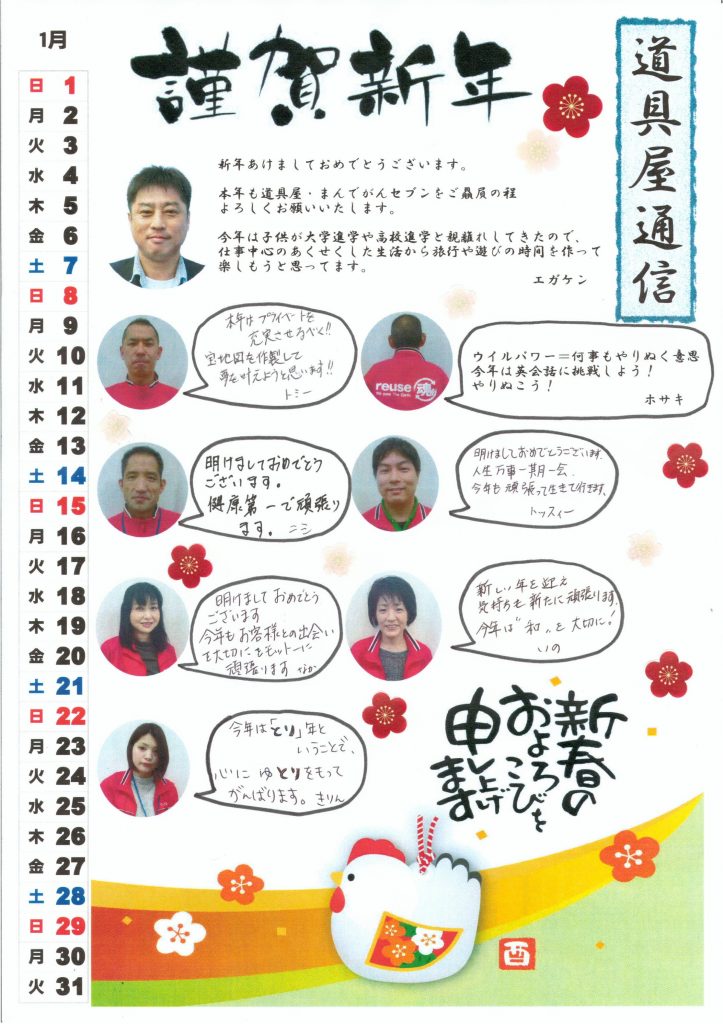 1月
日 1
月 2
火 3
水 4
木 5
金 6
土 7
日 8
月 9
火 10
水 11
木 12
金 13
土 14
日 15
月 16
火 17
水 18
木 19
金 20
土 21
日 22
月 23
火 24
水 25
木 26
金 27
土 28
日 29
月 30
火 31
謹賀新年
道具屋通信
新年あけましておめでとうございます。
本年も道具屋・まんでがんセブンをご贔屓の程
よろしくお願いいたします。
今年は子供が大学進学や高校進学と親離れしてきたので、
仕事中心のあくせくした生活から旅行や遊びの時間を作って
楽しもうと思ってます。
エガケン
本年はプライベートを
充実させるべく!!
宝地図を作製して
夢を叶えようと思います!!
トミー
reuse
魂
ウイルパワー=何事もやりぬく意思
今年は英会話に挑戦しよう!
やりぬこう!
ホサキ
明けましておめでとう
ございます。
健康第一で頑張り
ます。 ニシ
明けましておめでとうございます。
人生万事一期一会、
今年も頑張って生きて行きます。
トッスィー
明けまして おめでとう
ございます
今年もお客様との出会い
を大切にをモットーに
頑張ります なか
新しい年を迎え
気持ちも新たに頑張ります。
今年は"和"を大切に!
いの
今年は「とり」年と
いうことで、
心に ゆとりをもって
がんばります。 きりん
新春の
およろこびを
申し上げ
ます
酉